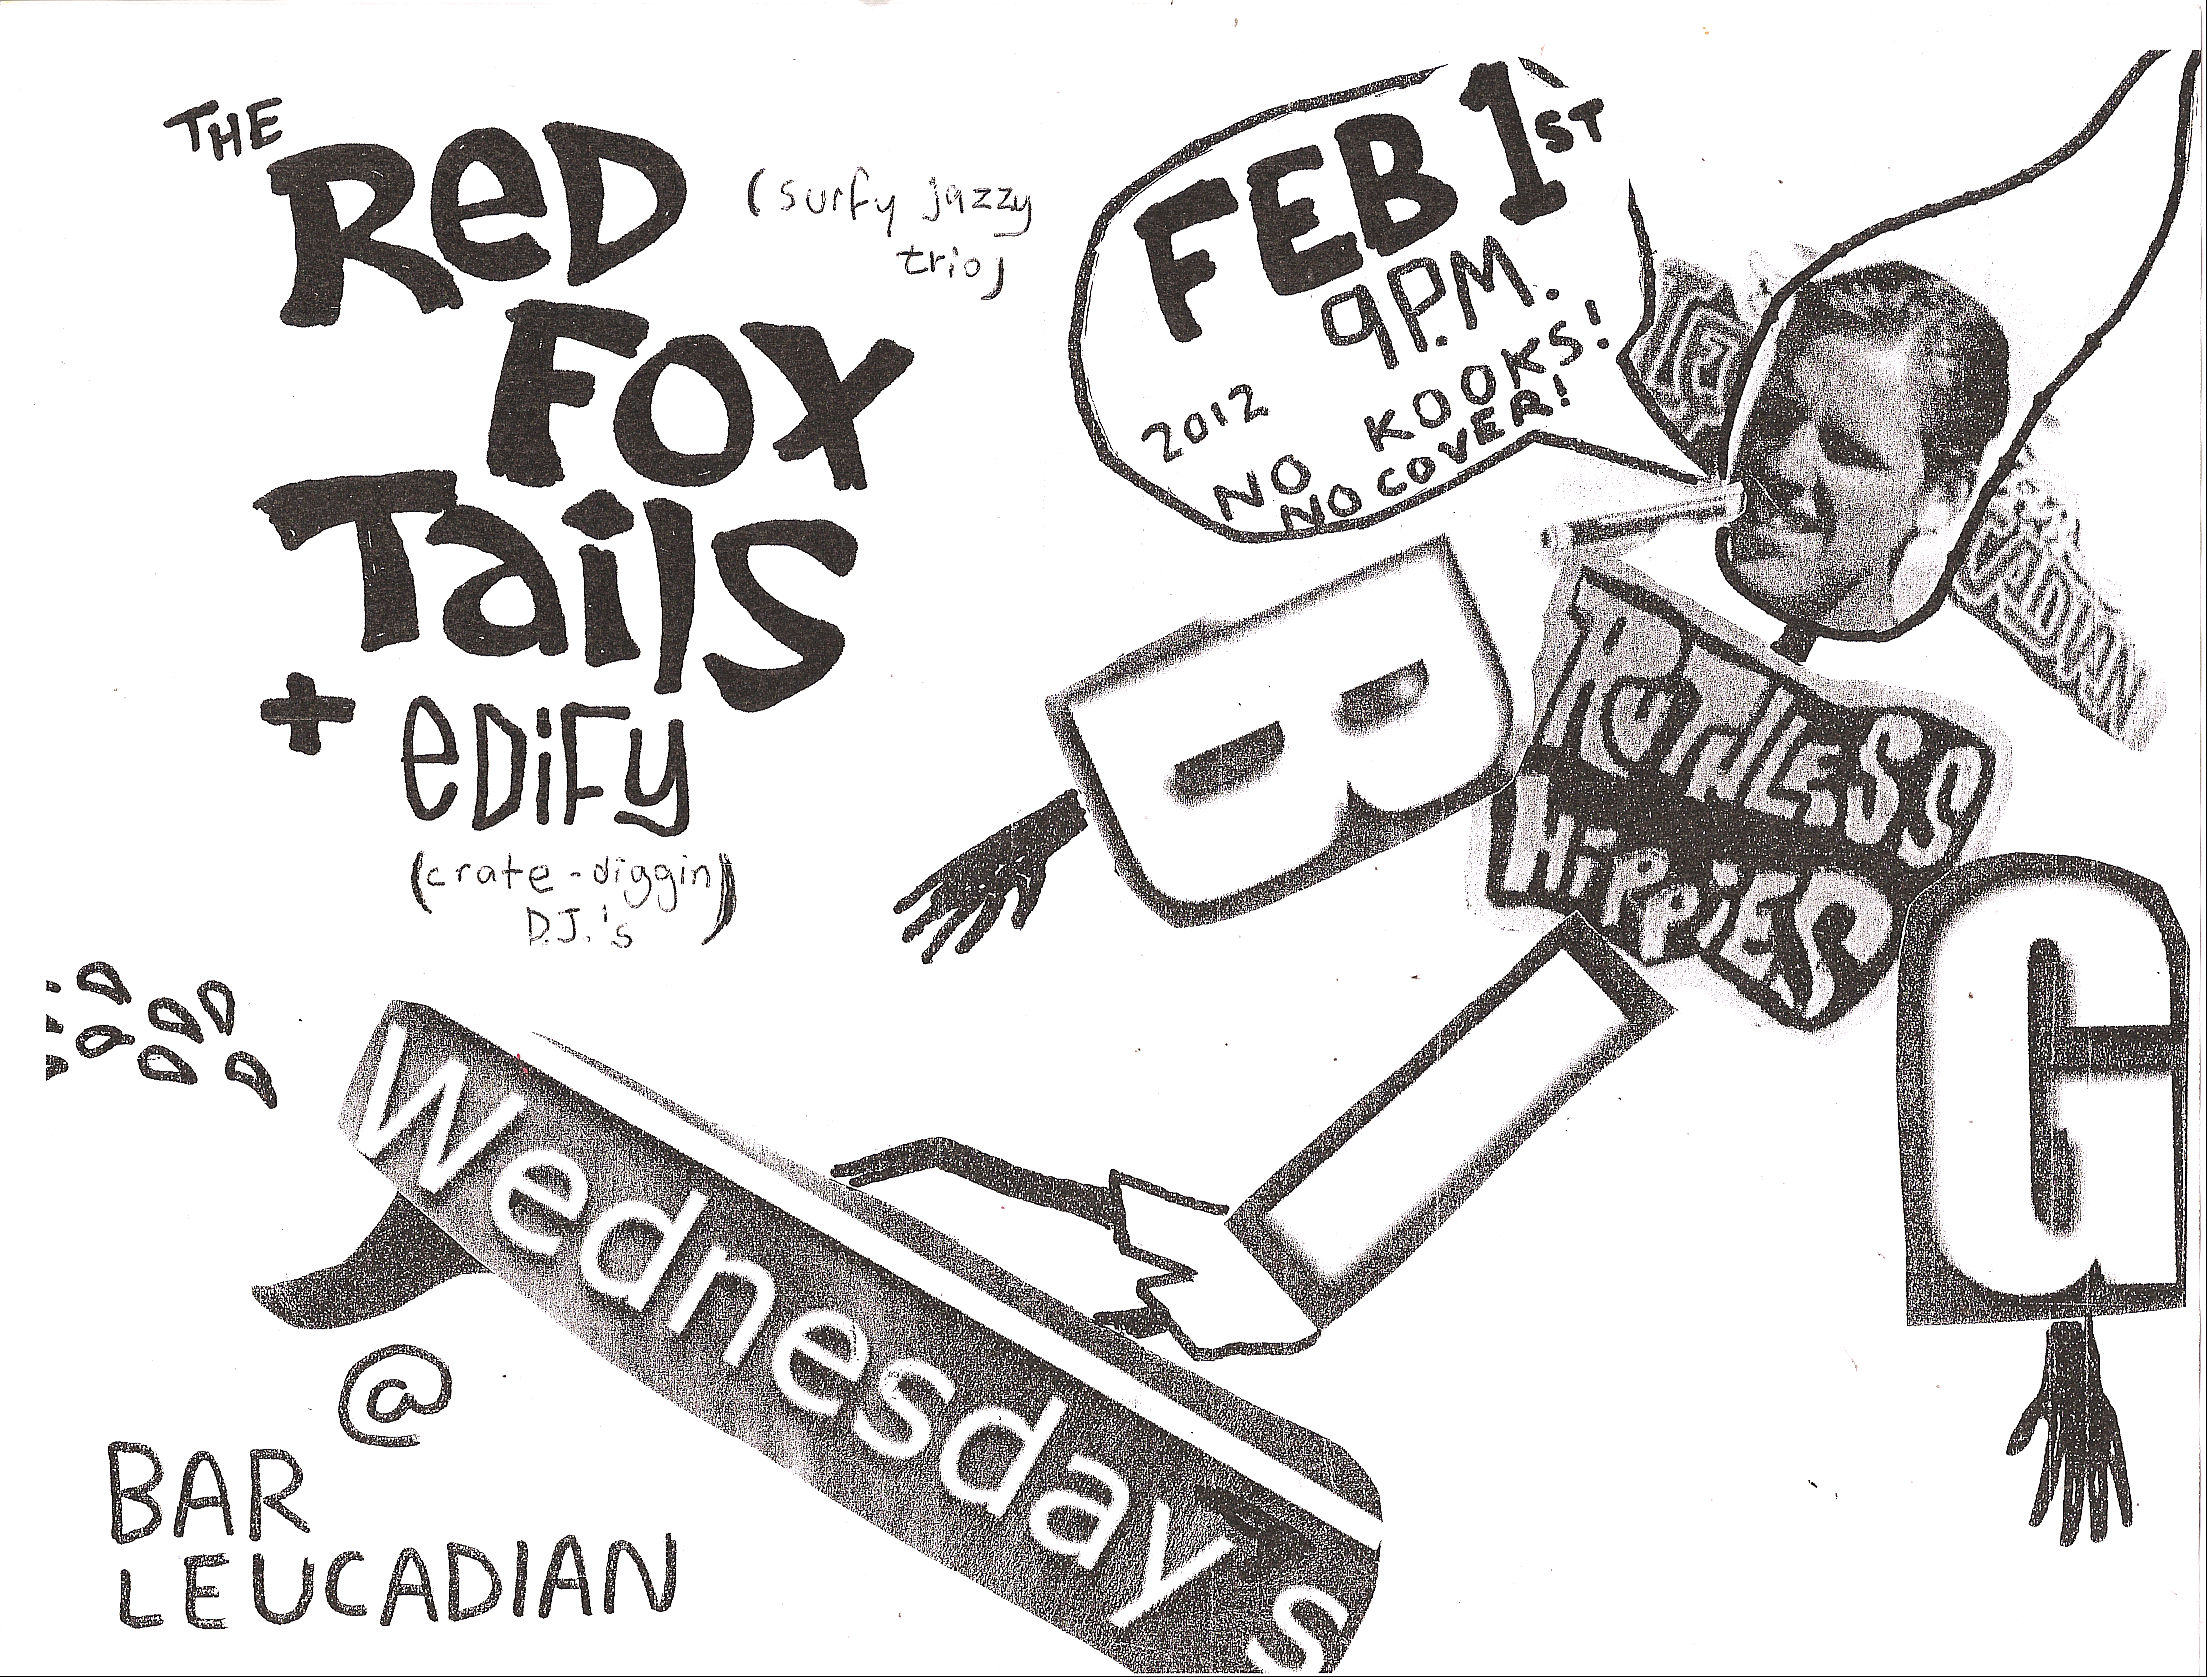 THE
Red
Fox
Tails
(surfy jazzy
trio)
+ eDiFy
(crate-diggin)
D.J.'s
FEB 1ST
9P.M.
2012
NO KOOKS!
NO COVER!
B
I
G
HiPPiES
Wednesday's
@
BAR
LEUCADIAN